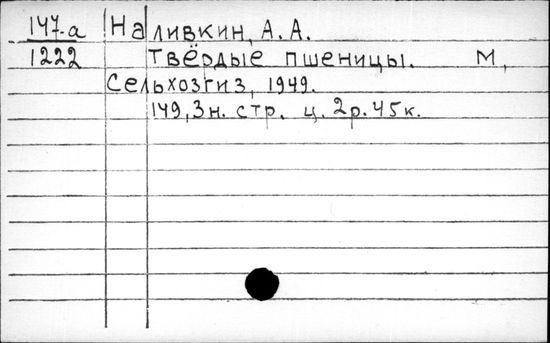 147-а Наливкин, А. А.
1222 Твёрдые пшеницы. М,
Сельхозгиз, 1949.
149, 3н. стр. ц. 2р. 45к.